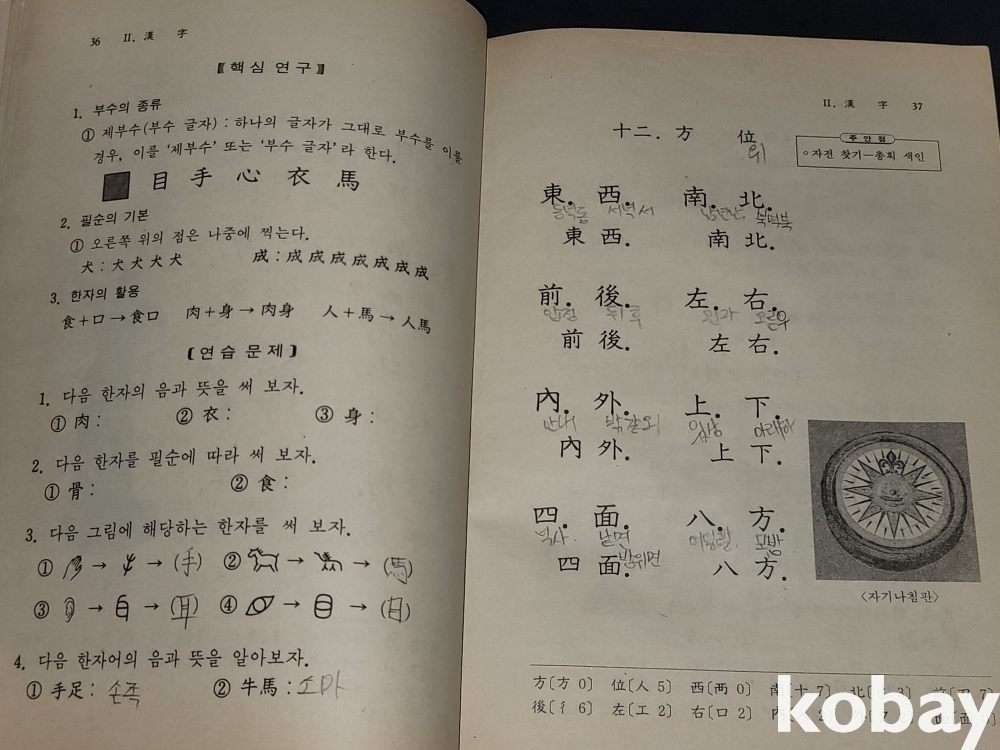 36 II. 漢 字
【핵심 연구】
1. 부수의 종류
① 제부수(부수 글자) : 하나의 글자가 그대로 부수를 이룰
경우, 이를 '제부수' 또는 '부수 글자'라 한다.
目 手 心 衣 馬
2. 필순의 기본
① 오른쪽 위의 점은 나중에 찍는다.
犬 : 犬 犬 犬 犬 成 : 成 成 成 成 成 成 成
3. 한자의 활용
食+口→食口 肉+身→肉身 人+馬→人馬
(연습 문제)
1. 다음 한자의 음과 뜻을 써 보자.
① 肉 : ② 衣 : ③ 身 :
2. 다음 한자를 필순에 따라 써 보자.
① 骨 : ② 食 :
3. 다음 그림에 해당하는 한자를 써 보자.
① → → (手) ② → → (馬)
③ → → (耳) ④ → → (目)
4. 다음 한자어의 음과 뜻을 알아보자.
① 手足 : 손족 ② 牛馬 : 소마
II. 漢 字 37
十二. 方 位
위
주안점
○자전 찾기—총획 색인
東. 西. 南. 北.
동녘동 서녘서 남녘남 북녘북
東 西. 南 北.
前. 後. 左. 右.
앞전 뒤후 왼좌 오른우
前 後. 左 右.
內. 外. 上. 下.
안내 밖같외 위상 아래하
內 外. 上 下.
四. 面. 八. 方.
넉사 낯면 여덟팔 모방
四 面. 방위면 八 方.
〈자기나침판〉
方〔方 0〕 位〔人 5〕 西〔襾 0〕 南〔十 7〕 北
後〔彳 6〕 左〔工 2〕 右〔口 2〕 內
kobay